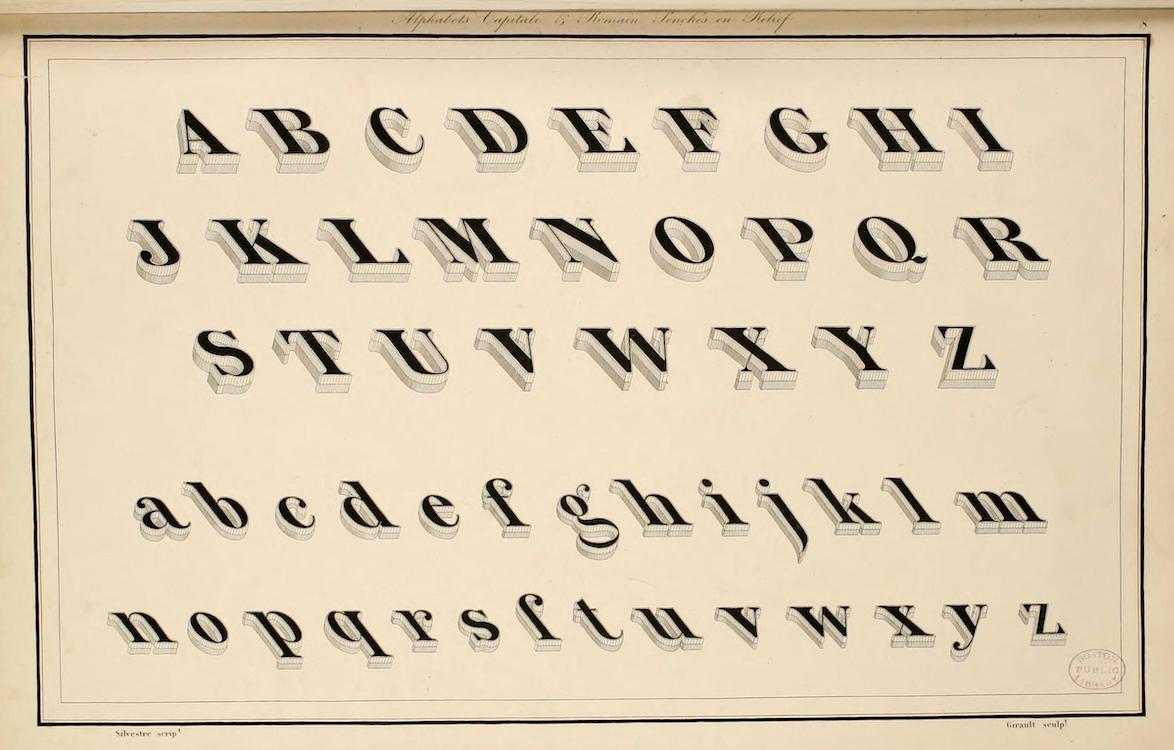 Alphabets Capitale & Romain Penchés en Relief
A B C D E F G H I
J K L M N O P Q R
S T U V W X Y Z
a b c d e f g h i j k l m
n o p q r s ſ t u v w x y z
BOSTON
PUBLIC
LIBRARY
Silvestre scripᵗ
Girault sculpᵗ